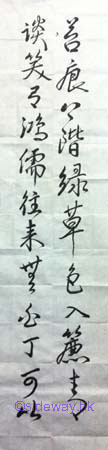 苔痕上階綠草色入簾青
談笑有鴻儒往来無白丁可以
©sideway.hk